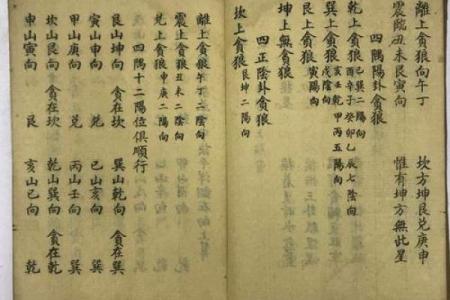 離上貪狼向午丁　坎方坤艮兌庚申
震臨丑未艮寅向　惟有坤方無此星
四隅陽卦貪狼
乾上貪狼
巽上貪狼
艮上貪狼
坤上無貪狼
四正陰卦貪狼
坎上貪狼艮坤二陽向
離上貪狼午丁二陰向
震上貪狼丑未二陰向
兌上貪狼庚申二陽向
四隅十二陽位俱順行
艮山坤向　貪在坎　巽山乾向　貪在巽
寅山申向　兌　巳山亥向　巽
甲山庚向　兌　丙山壬向　巽
坎山艮向　貪在坎　乾山巽向　貪在巽
申山寅向　艮　亥山巳向　乾